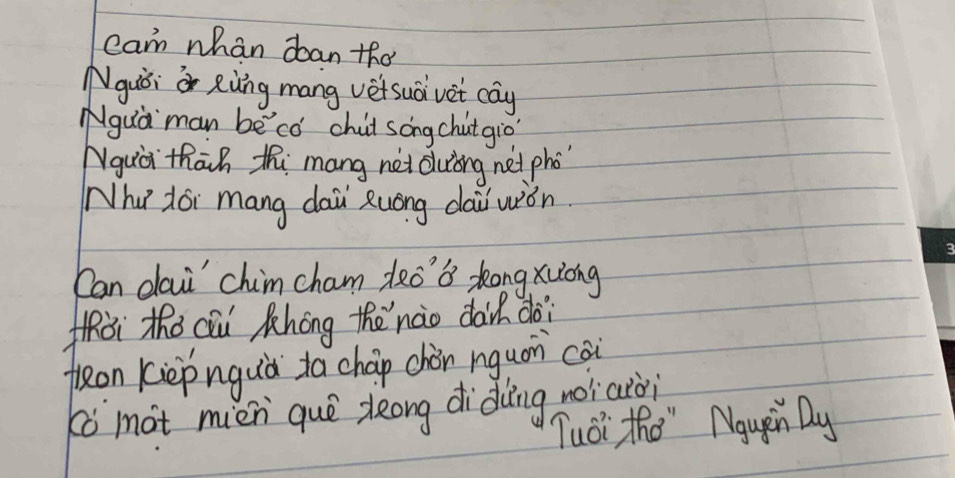 cảm nhận đoạn thơ
Người ở rừng mang vết suối vết cây
Người mạn bể có chút sóng chút gió
Người thành thị mang nét đường nét phố
Như tôi mang dấu ruộng dấu vườn.
Con dấu chìm chạm trổ ở trong xương
thời thơ ấu không thể nào đánh đổi
trọn kiếp người ta chập chờn nguồn cội
có một miền quê trong đi đứng nói cười
"Tuổi thơ" Nguyễn Duy
3